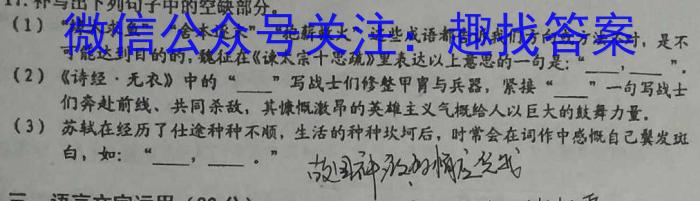 17. 补写出下列句子中的空缺部分。
(1) “缘木求鱼”“舍本逐末”“抱薪救火”，这些成语都告诉我们方向方法不对，是不
可能达到目的的，魏征在《谏太宗十思疏》里表达以上意思的一句是：“____，____”。
微信公众号关注：趣找答案
(2) 《诗经·无衣》中的“____”写战士们修整甲胄与兵器，紧接“____”一句写战士
们奔赴前线、共同杀敌，其慷慨激昂的英雄主义气概给人以巨大的鼓舞力量。
(3) 苏轼在经历了仕途种种不顺，生活的种种坎坷后，时常会在词作中感慨自己鬓发斑
白，如：“____，____。”
故国神游 多情应笑我
三、语言文字运用